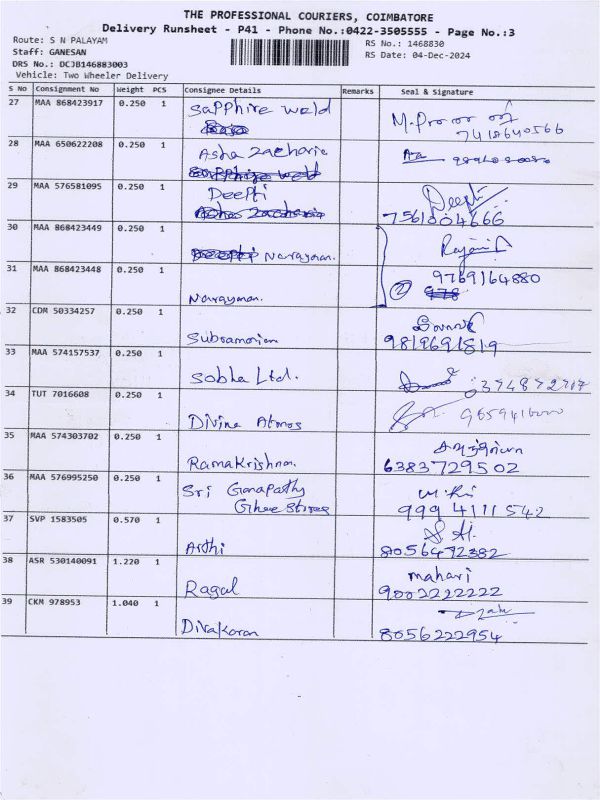 THE PROFESSIONAL COURIERS, COIMBATORE
Delivery Runsheet - P41 - Phone No.:0422-3505555 - Page No.:3
Route: S N PALAYAM
Staff: GANESAN
DRS No.: DCJB146883003
Vehicle: Two Wheeler Delivery
RS No.: 1468830
RS Date: 04-Dec-2024
S No Consignment No Weight PCS Consignee Details Remarks Seal & Signature
27 MAA 868423917 0.250 1 Sapphire weld
7418640566
28 MAA 650622208 0.250 1 Asha Zacharia
29 MAA 576581095 0.250 1 Deepti Deepti
7561004666
30 MAA 868423449 0.250 1 Narayanan.
31 MAA 868423448 0.250 1 Narayanan. 2 9769164880
32 CDM 50334257 0.250 1 Subramanian
9819691819
33 MAA 574157537 0.250 1 Sobha Ltd.
34 TUT 7016608 0.250 1 Divine Atmos
35 MAA 574303702 0.250 1 Ramakrishnan.
6383729502
36 MAA 576995250 0.250 1 Sri Ganapathy
Ghee Stores 999 4111 542
37 SVP 1583505 0.570 1 Arthi
8056472382
38 ASR 530140091 1.220 1 Ragal mahari
9002222222
39 CKM 978953 1.040 1 Divakaran
8056222954